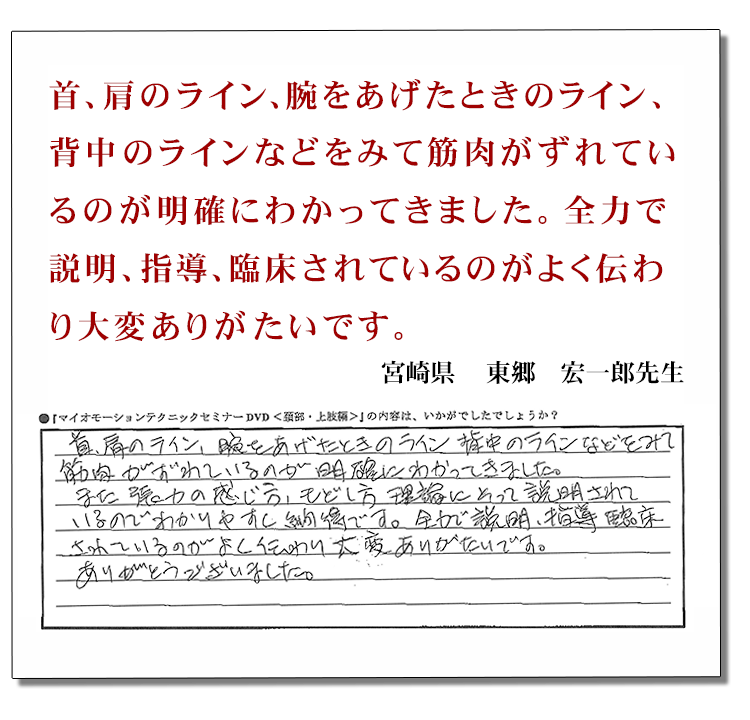 首、肩のライン、腕をあげたときのライン、
背中のラインなどをみて筋肉がずれてい
るのが明確にわかってきました。全力で
説明、指導、臨床されているのがよく伝わ
り大変ありがたいです。
宮崎県　東郷　宏一郎先生
●『マイオモーションテクニックセミナーDVD＜頚部・上肢編＞』の内容は、いかがでしたでしょうか？
首、肩のライン、腕をあげたときのライン 背中のラインなどをみて
筋肉がずれているのが明確にわかってきました。
また張力の感じ方、もどし方 理論にそって説明されて
いるのでわかりやすく納得です。全力で説明、指導 臨床
されているのがよく伝わり大変ありがたいです。
ありがとうございました。